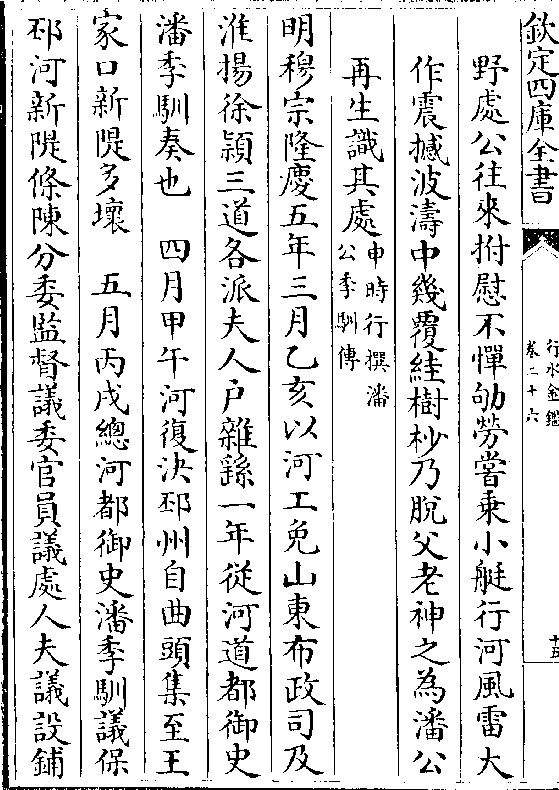 欽定四庫全書
行水金鑑
卷二十六
十五
野處公往來拊慰不憚劬勞嘗乘小艇行河風雷大
作震撼波濤中幾覆絓樹杪乃脫父老神之為潘公
再生識其處申時行撰潘
公季馴傳
明穆宗隆慶五年三月乙亥以河工免山東布政司及
淮揚徐潁三道各派夫人戶雜繇一年從河道都御史
潘季馴奏也 四月甲午河復決邳州自曲頭集至王
家口新隄多壞 五月丙戌總河都御史潘季馴議保
邳河新隄條陳分委監督議委官員議處人夫議設鋪